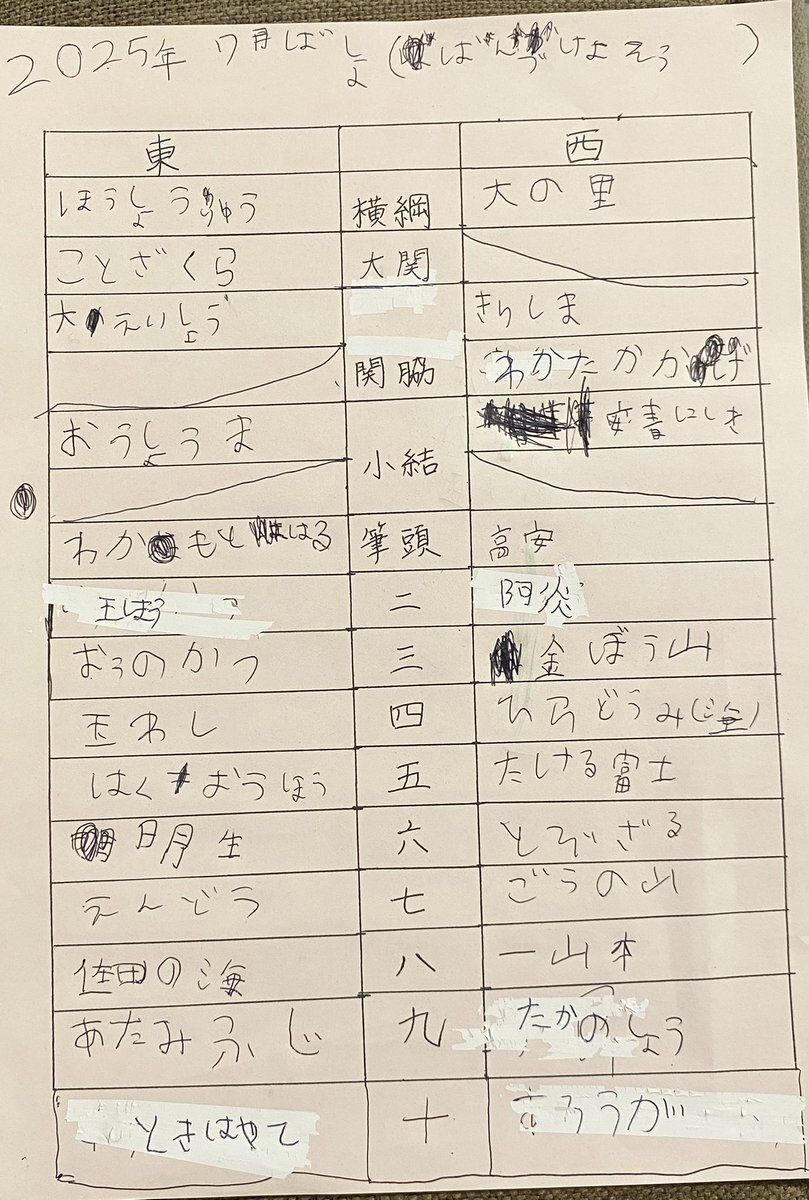 2025年 7月ばしょ(ばんづけよそう)
東 西
ほうしょうりゅう 横綱 大の里
ことざくら 大関
大えいしょう きりしま
関脇 わかたかかげ
おうしょうま 小結 安青にしき
わかもとはる 筆頭 高安
玉しょう 二 阿炎
おうのかつ 三 金ぼう山
玉わし 四 ひらどうみ(海)
はくおうほう 五 たける富士
明生 六 とびざる
えんどう 七 ごうの山
佐田の海 八 一山本
あたみふじ 九 たかのしょう
ときはやて 十 ろうが